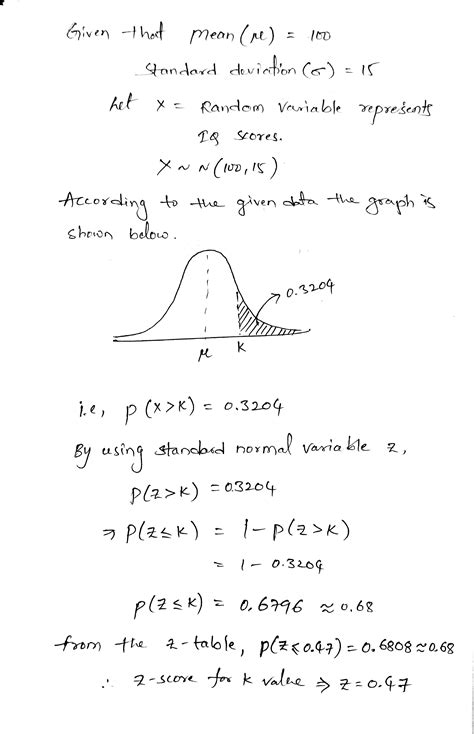 Given that mean (μ) = 100
Standard deviation (σ) = 15
Let X = Random Variable represents
IQ scores.
X ~ N (100, 15)
According to the given data the graph is
shown below.
0.3204
μ K
i.e, p (X>K) = 0.3204
By using standard normal variable z,
P(z>K) = 0.3204
⇒ P(z≤K) = 1-P(z>K)
= 1 - 0.3204
P(z≤K) = 0.6796 ≈ 0.68
from the z-table, P(z≤0.47) = 0.6808 ≈ 0.68
∴ z-score for k value ⇒ z = 0.47